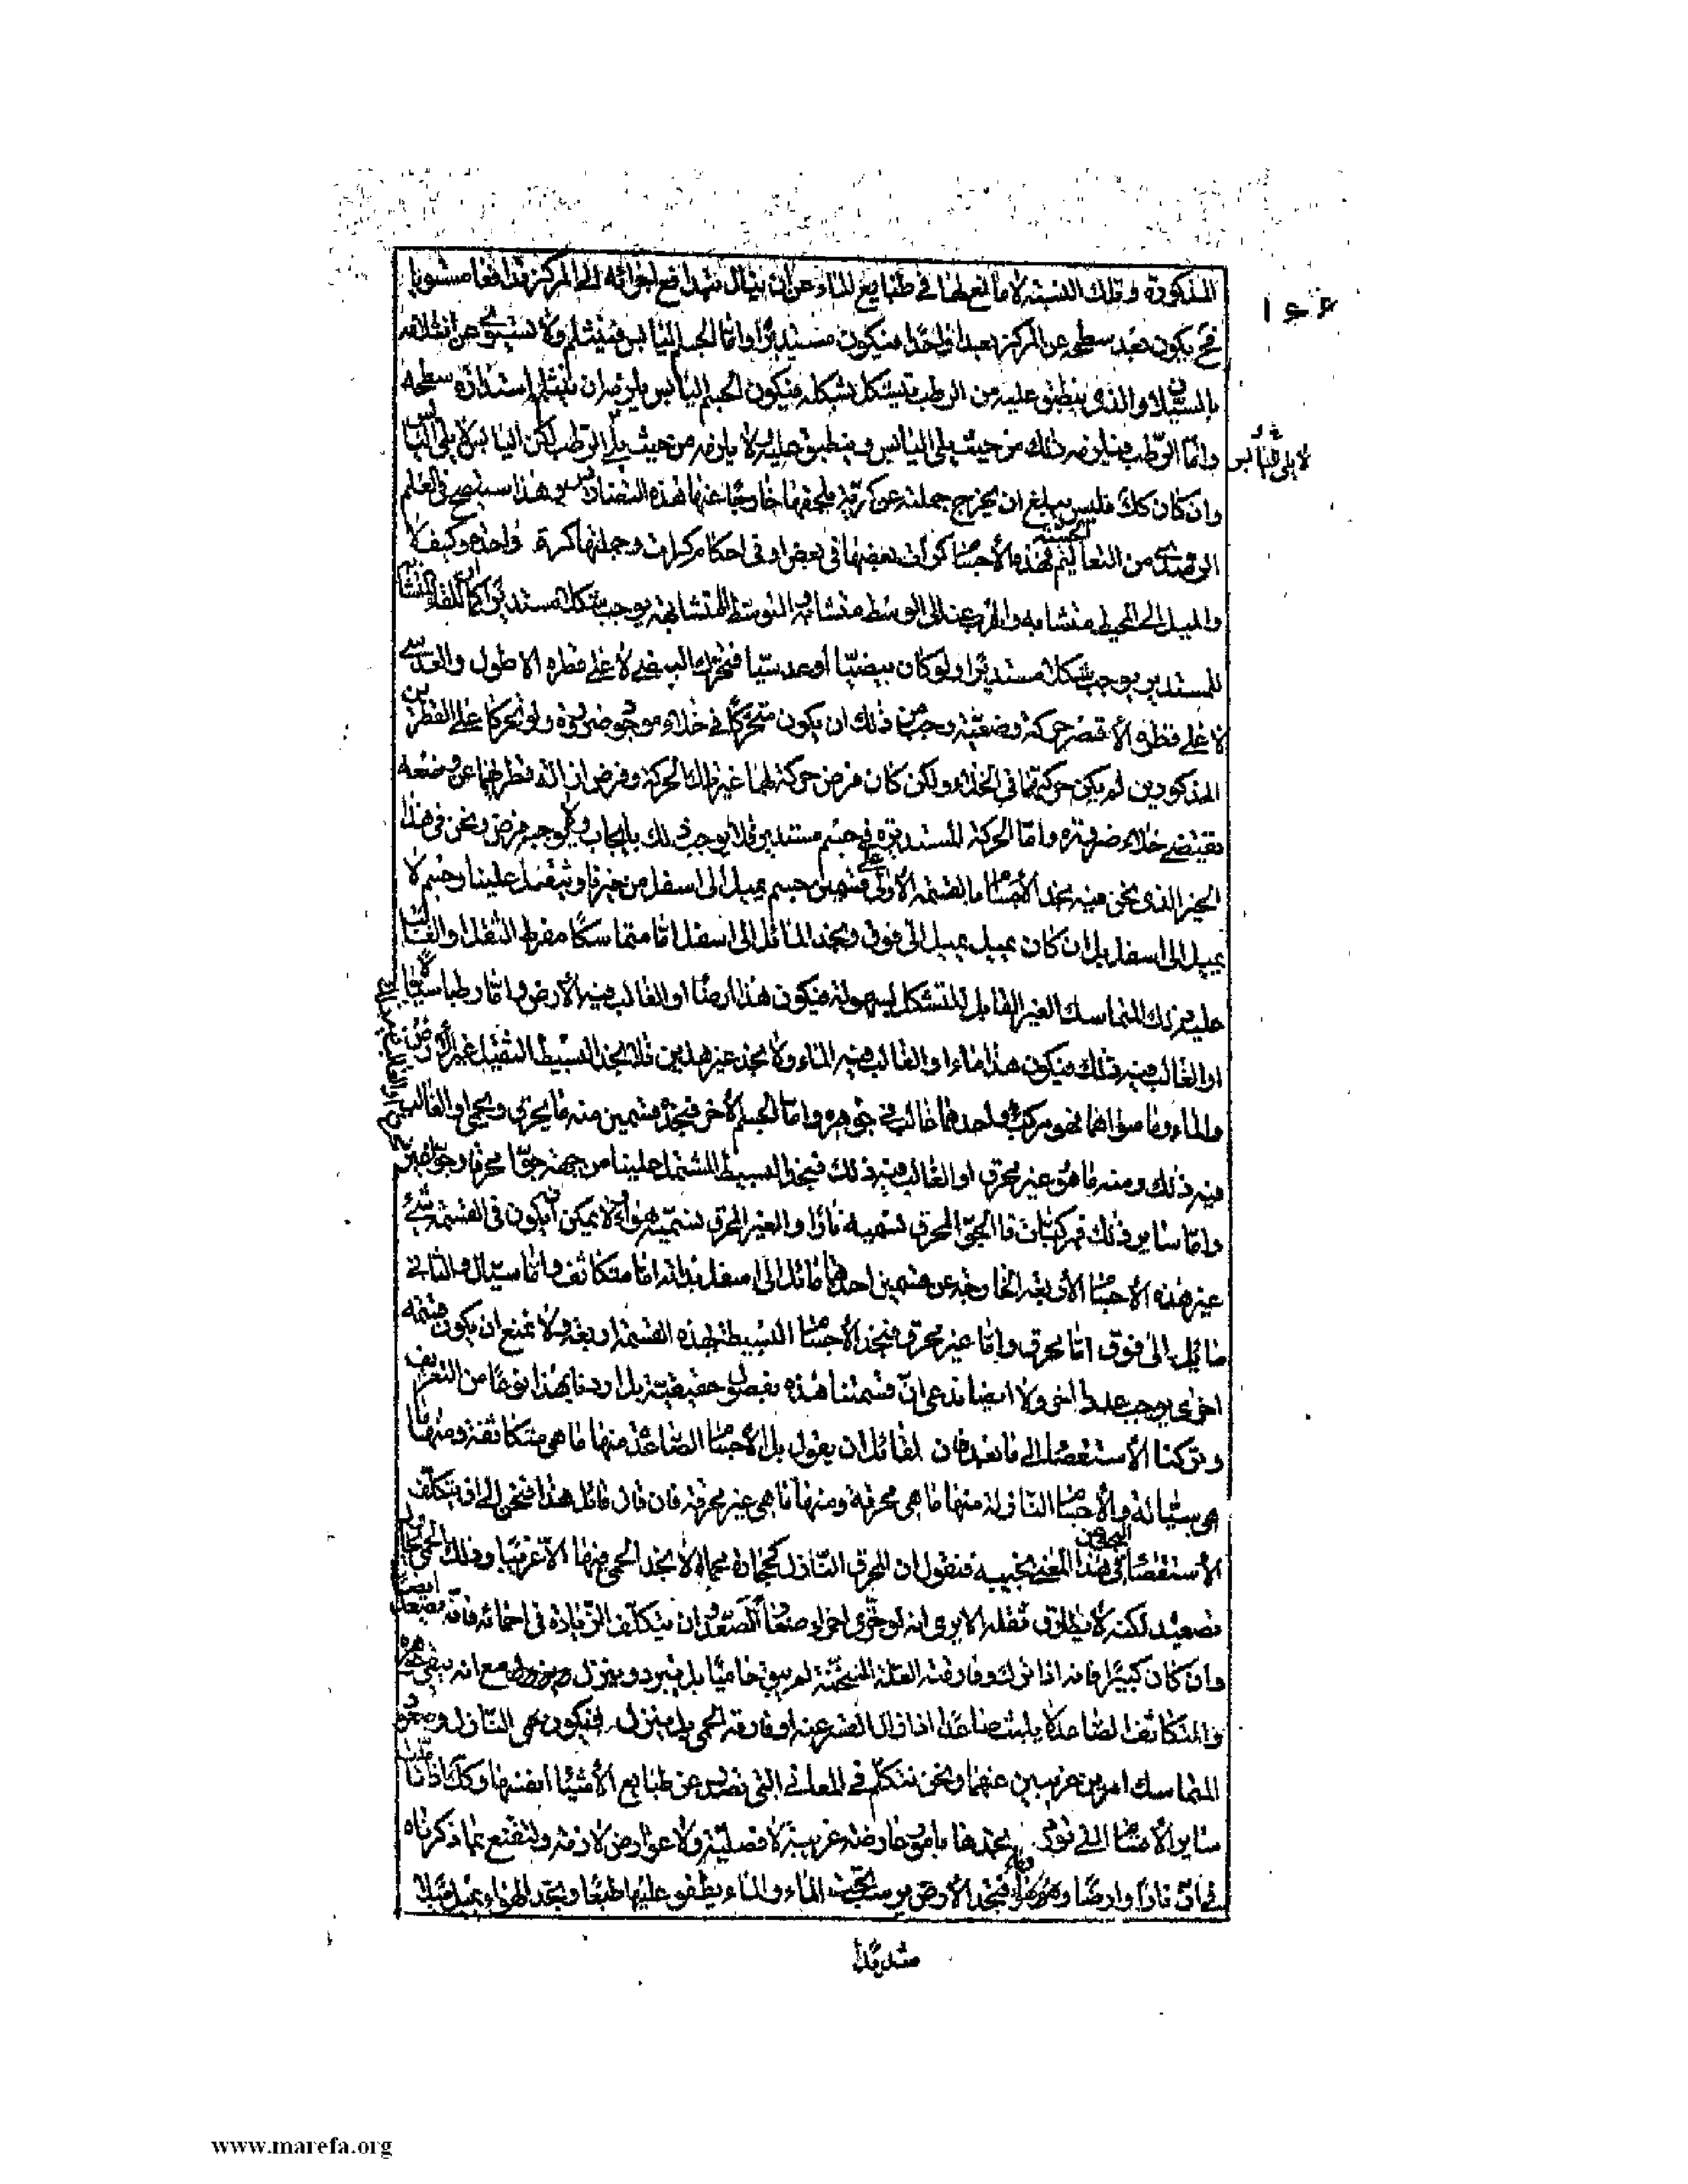 المذكورة وتلك النسبة لا مانع لها في طبايع الماء عن ان ينال بتدافع اجزائه الى المركز تدافعا مستويا
فح يكون بعد سطحه عن المركز بعدا واحدا فيكون مستديرا واما الجسم اليابس فينثلم ولا يستوى عن انثلامه
بالسيلان والذى ينطبق عليه من الرطب يتشكل بشكله فيكون الجسم اليابس يعرض ان ينثلم استدارة سطحه
واما الرطب فيلزمه ذلك من حيث يلى اليابس وينطبق عليه ولا يلزمه من حيث يلى الرطب لكن اليابس لا يلى اليابس
وان كان كك فليس يبلغ ان يخرج جملته عن كرية يلحقها خارجا عنها هذه التضاريس وهذا سيتضح في العلم
الرصدى من التعاليم فهذه الأجسام كرات بعضها في بعض او في احكام كرات وجملتها كرة واحدة وكيف لا
والميل الى المحيط متشابه والهرب عنه الى الوسط متشابه والتوسط المتشابه يوجب شكلا مستديرا كما اللقاء المتشابه
للمستدير يوجب شكلا مستديرا ولو كان بيضيا او عدسيا فتحرك البيضى لا على قطره الاطول والعدسى
لا على قطره الأقصر حركة وضعية وجب من ذلك ان يكون متحركا في خلاء موجود ضرورة ولو تحركا على القطرين
المذكورين لم يكن حركتهما في الخلاء ولكن كان فرض حركة لهما غير تلك الحركة وفرض ازالة قطرهما عن وضعه
يقتضى خلاء ضرورة واما الحركة المستديرة في جسم مستدير فلا يوجب ذلك بايجاب ولا يوجبه فرض ونحن في هذا
الحيز الذى نحن فيه نجد الأجسام بالقسمة الأولى على قسمين جسم يميل الى اسفل من حيزنا ويثقل علينا وجسم لا
يميل الى اسفل بل ان كان يميل يميل الى فوق ونجد المائل الى اسفل اما متماسكا مفرط الثقل او الغالب
عليه ذلك المتماسك الغير القابل للتشكل بسهولة فيكون هذا ارضا او الغالب فيه الأرض واما رطبا سيالا
او الغالب فيه ذلك فيكون هذا ماءا او الغالب فيه الماء ولا نجد غير هذين فلا نجد البسيط الثقيل غير الأرض
والماء وما سواهما فهو مركب واحدهما غالب في جوهره واما الجسم الأخر فنجد قسمين منه ما يحرق ويحمى او الغالب
فيه ذلك ومنه ما هو غير محرق او الغالب فيه ذلك فنجد البسيط المشتمل علينا من جهته جوا محرقا وجوا غير
واما ساير ذلك فمركبات فالجو المحرق نسميه نارا والغير المحرق نسميه هواء ولا يمكن ان يكون في القسمة شئ
غير هذه الأجسام الأربعة الخارجة عن قسمين احدهما مائل الى اسفل بذاته اما متكاثف واما سيال والثاني
مائل الى فوق اما محرق واما غير محرق فنجد الأجسام البسيطة بهذه القسمة اربعة ولا نمنع ان يكون قسمة
اخرى يوجب عددا اخر ولا ايضا ندعى ان قسمتنا هذه بفصول حقيقية بل اردنا بهذا نوعا من التعريف
وتركنا الأستقصاء الى ما بعد فان لقائل ان يقول بل الأجسام الصاعدة منها ما هى متكاثفة ومنها ما
هى سيالة والأجسام النازلة منها ما هى محرقة ومنها ما هى غير محرقة فان قال قائل هذا فنحن الى ان يتكلف
الأستقصاء في هذا المعنى نجيبه فنقول ان المحرق النازل كحجارة محماة لا نجد الحمى فيها الا غريبا وذلك الحمى يحاول
تصعيده لكنه لا يطاوق ثقله الا يرى انه لو جزئ اجزاء صغارا لصعد وان يتكلف الزيادة في احمائه فانه يصعد ايضا
وان كان كبيرا فانه اذا ترك وفارقته العلة المسخنة لم يبق حاميا بل يتبرد وينزل مع انه يبقى جوهره
والمتكاثف الصاعد لا يلبث صاعدا اذا زال القسر عنه او فارقه الحمى بل ينزل فيكون حمى النازل وصعود
المتماسك امرين غريبين عنهما ونحن نتكلم في المعانى التى تصدر عن طبايع الأشيا انفسها وكك اذا تاملت
ساير الأقسام التى نورد نجدها بامور عارضة غريبة لا فصلية ولا عوارض لازمة ولنقنع بما ذكرناه
في ان نارا وارضا وهواء وماء فنجد الأرض يرسب تحت الماء والماء يطفو عليها طبعا ونجد الهواء يميل ميلا
شديدا
لا يلى اليابس
www.marefa.org